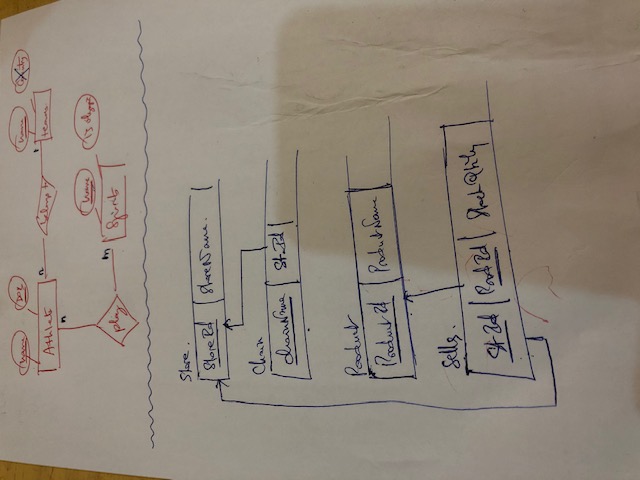 name DOB name
Athlete n belongs to 1 teams
n
name
play m Sports
Store.
StoreId StoreName.
Chain
chainName StId
Product
ProductId ProductName
Sells.
StId ProdId StockQtity